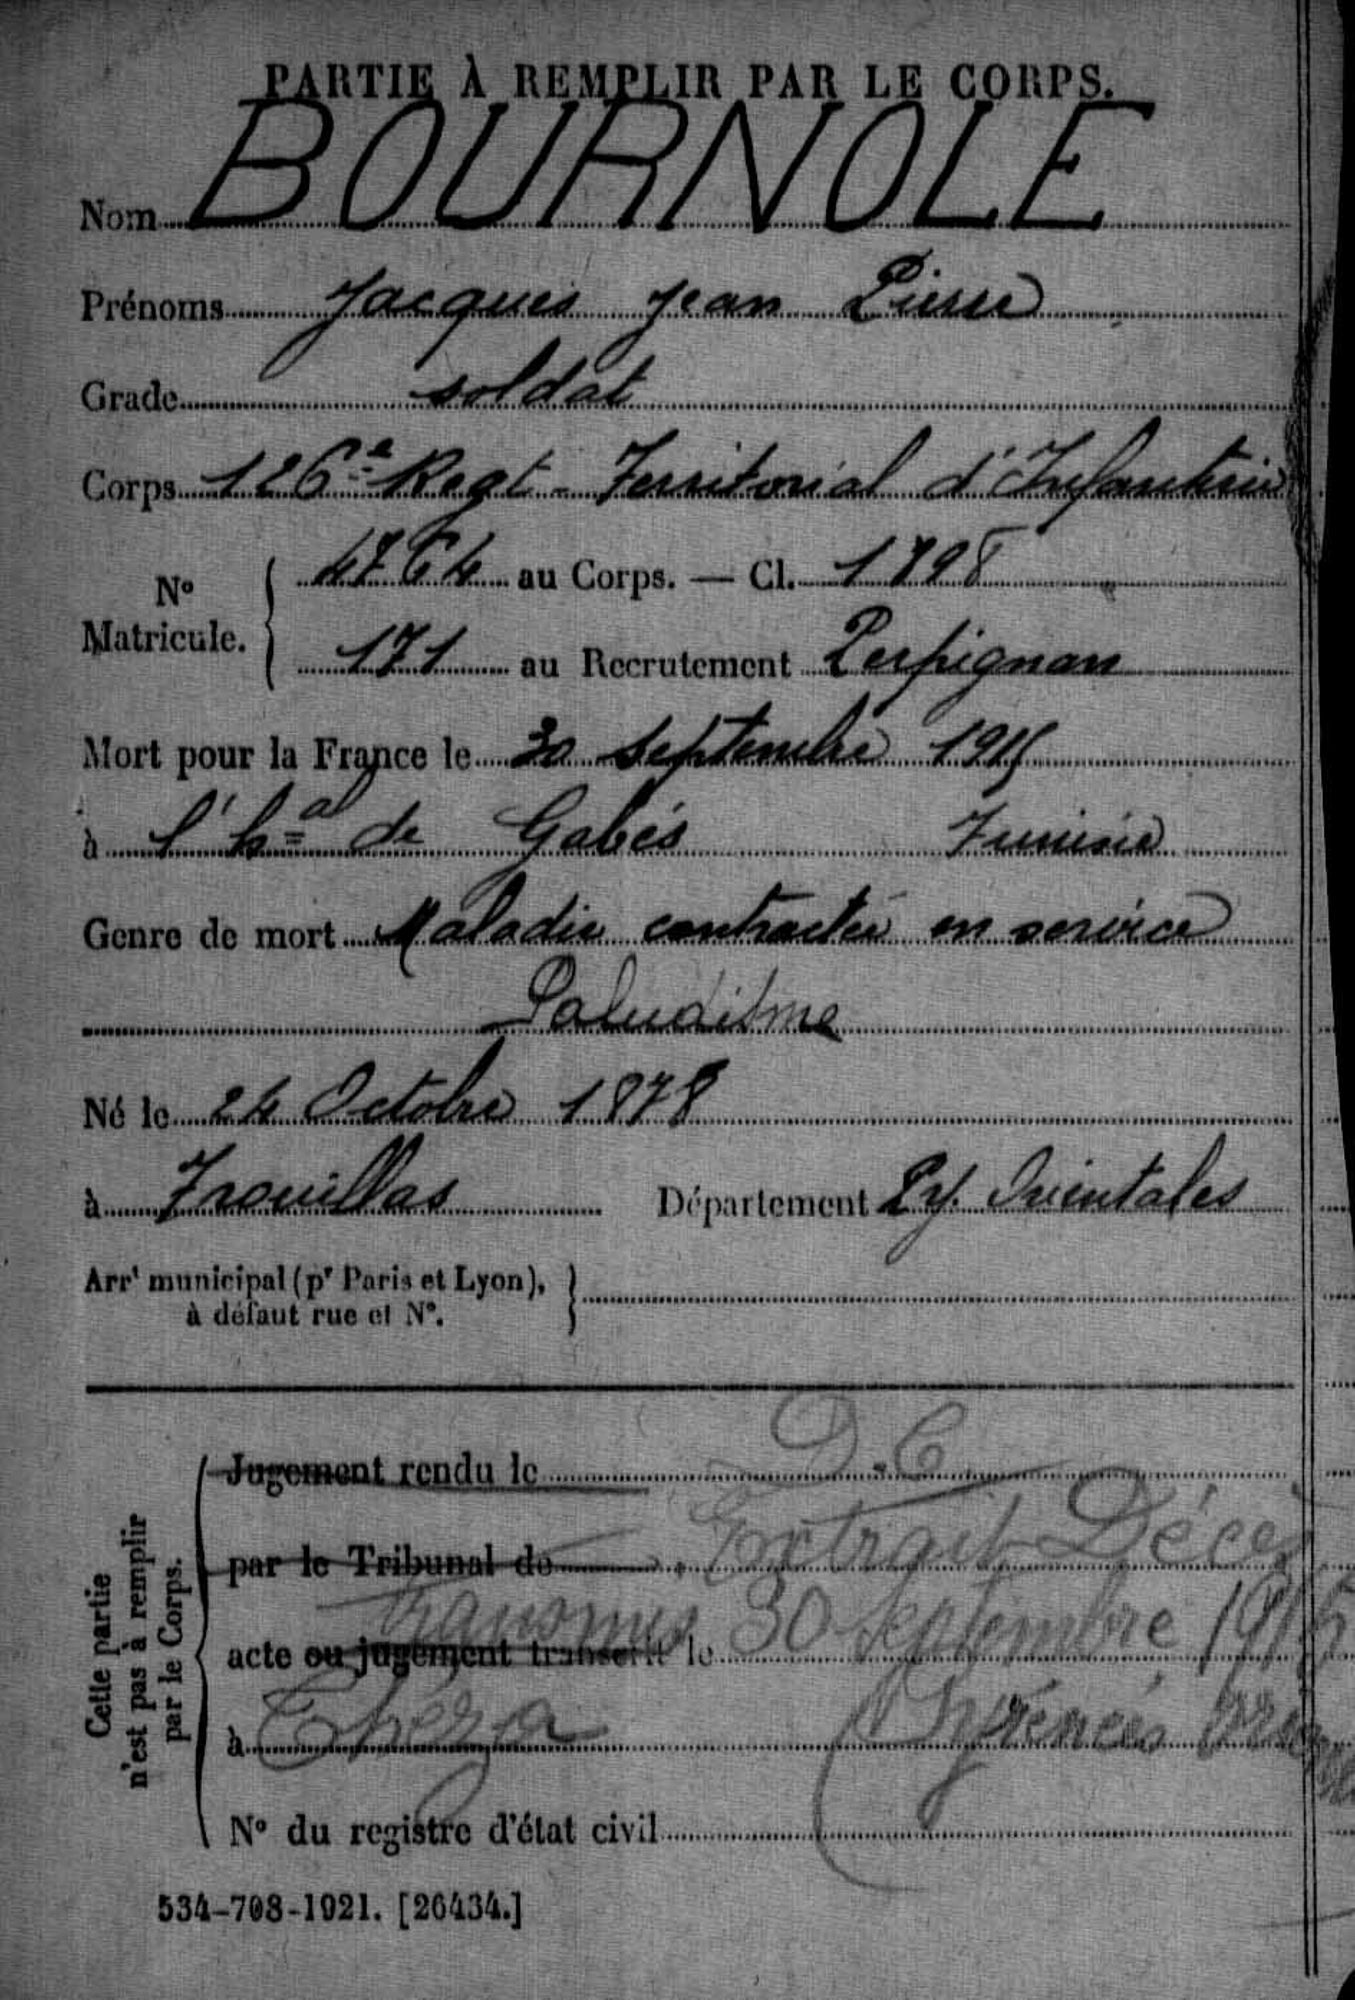 PARTIE À REMPLIR PAR LE CORPS.
Nom BOURNOLE
Prénoms Jacques Jean Pierre
Grade soldat
Corps 126e Regt Territorial d'Infanterie
No Matricule. 4764 au Corps. — Cl. 1898
171 au Recrutement Perpignan
Mort pour la France le 30 septembre 1915
à l'hal de Gabés Tunisie
Genre de mort Maladie contractée en service
Paludisme
Né le 24 Octobre 1878
à Trouillas Département Py. Orientales
Arrt municipal (pr Paris et Lyon),
à défaut rue et No.
Cette partie
n'est pas à remplir
par le Corps.
Jugement rendu le D.C
par le Tribunal de Extrait Décès
transmis 30 septembre 1915
acte ou jugement transcrit le
à Théza (Pyrénées
No du registre d'état civil
534-708-1921. [26434.]